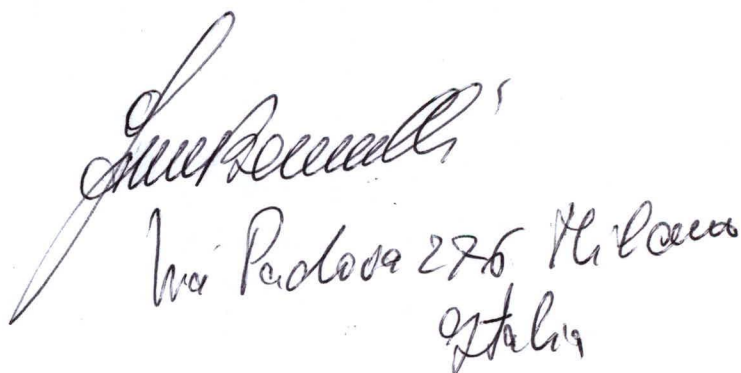 Via Padova 276 Milano
Italia